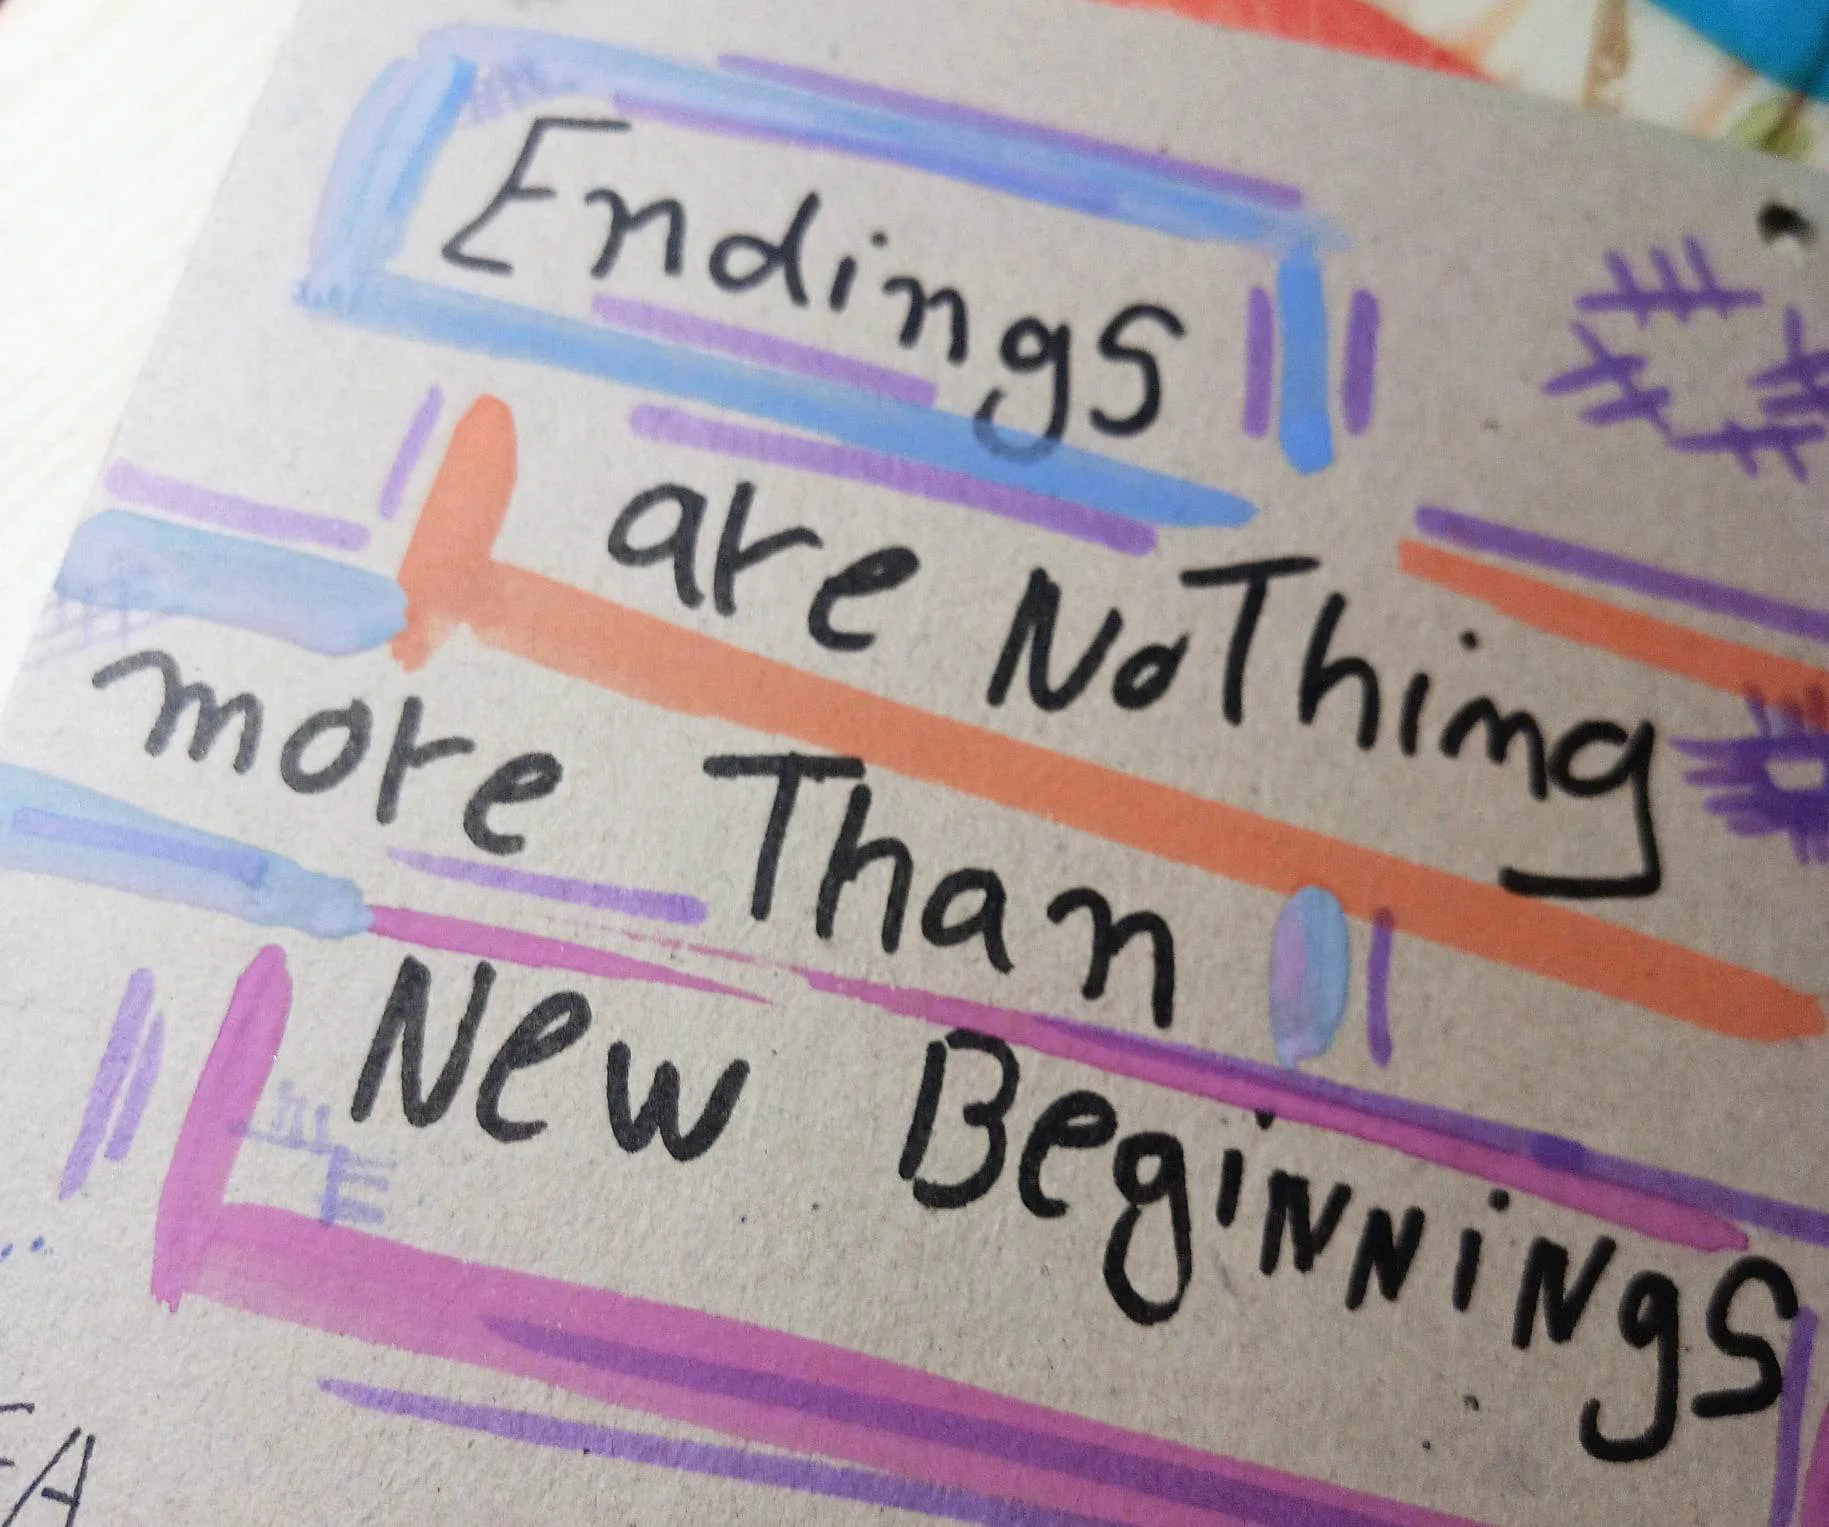 Endings
are NoThing
more Than
New BegiNNiNgS